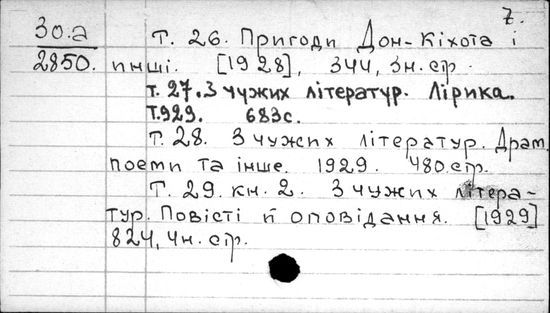 7.
30.а
2850.
Т. 26. Пригоди Дон-Кіхота і
инші. [1928], 344, 3н. стр.
т. 27. З чужих літератур. Лірика.
Т.929. 683с.
Т. 28. З чужих літератур. Драм.
поеми та інше. 1929. 480.стр.
Т. 29. кн. 2. З чужих літера-
тур. Повісті й оповідання. [1929]
824, 4н. стр.